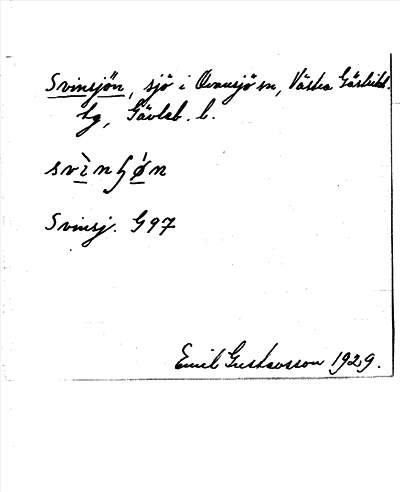 Svinsjön, sjö i Ovansjö sn, Västra Gästrikl.
tg, Gävleb. l.
svìnɧǿn
Svinsj. G97
Emil Gustavsson 1929.